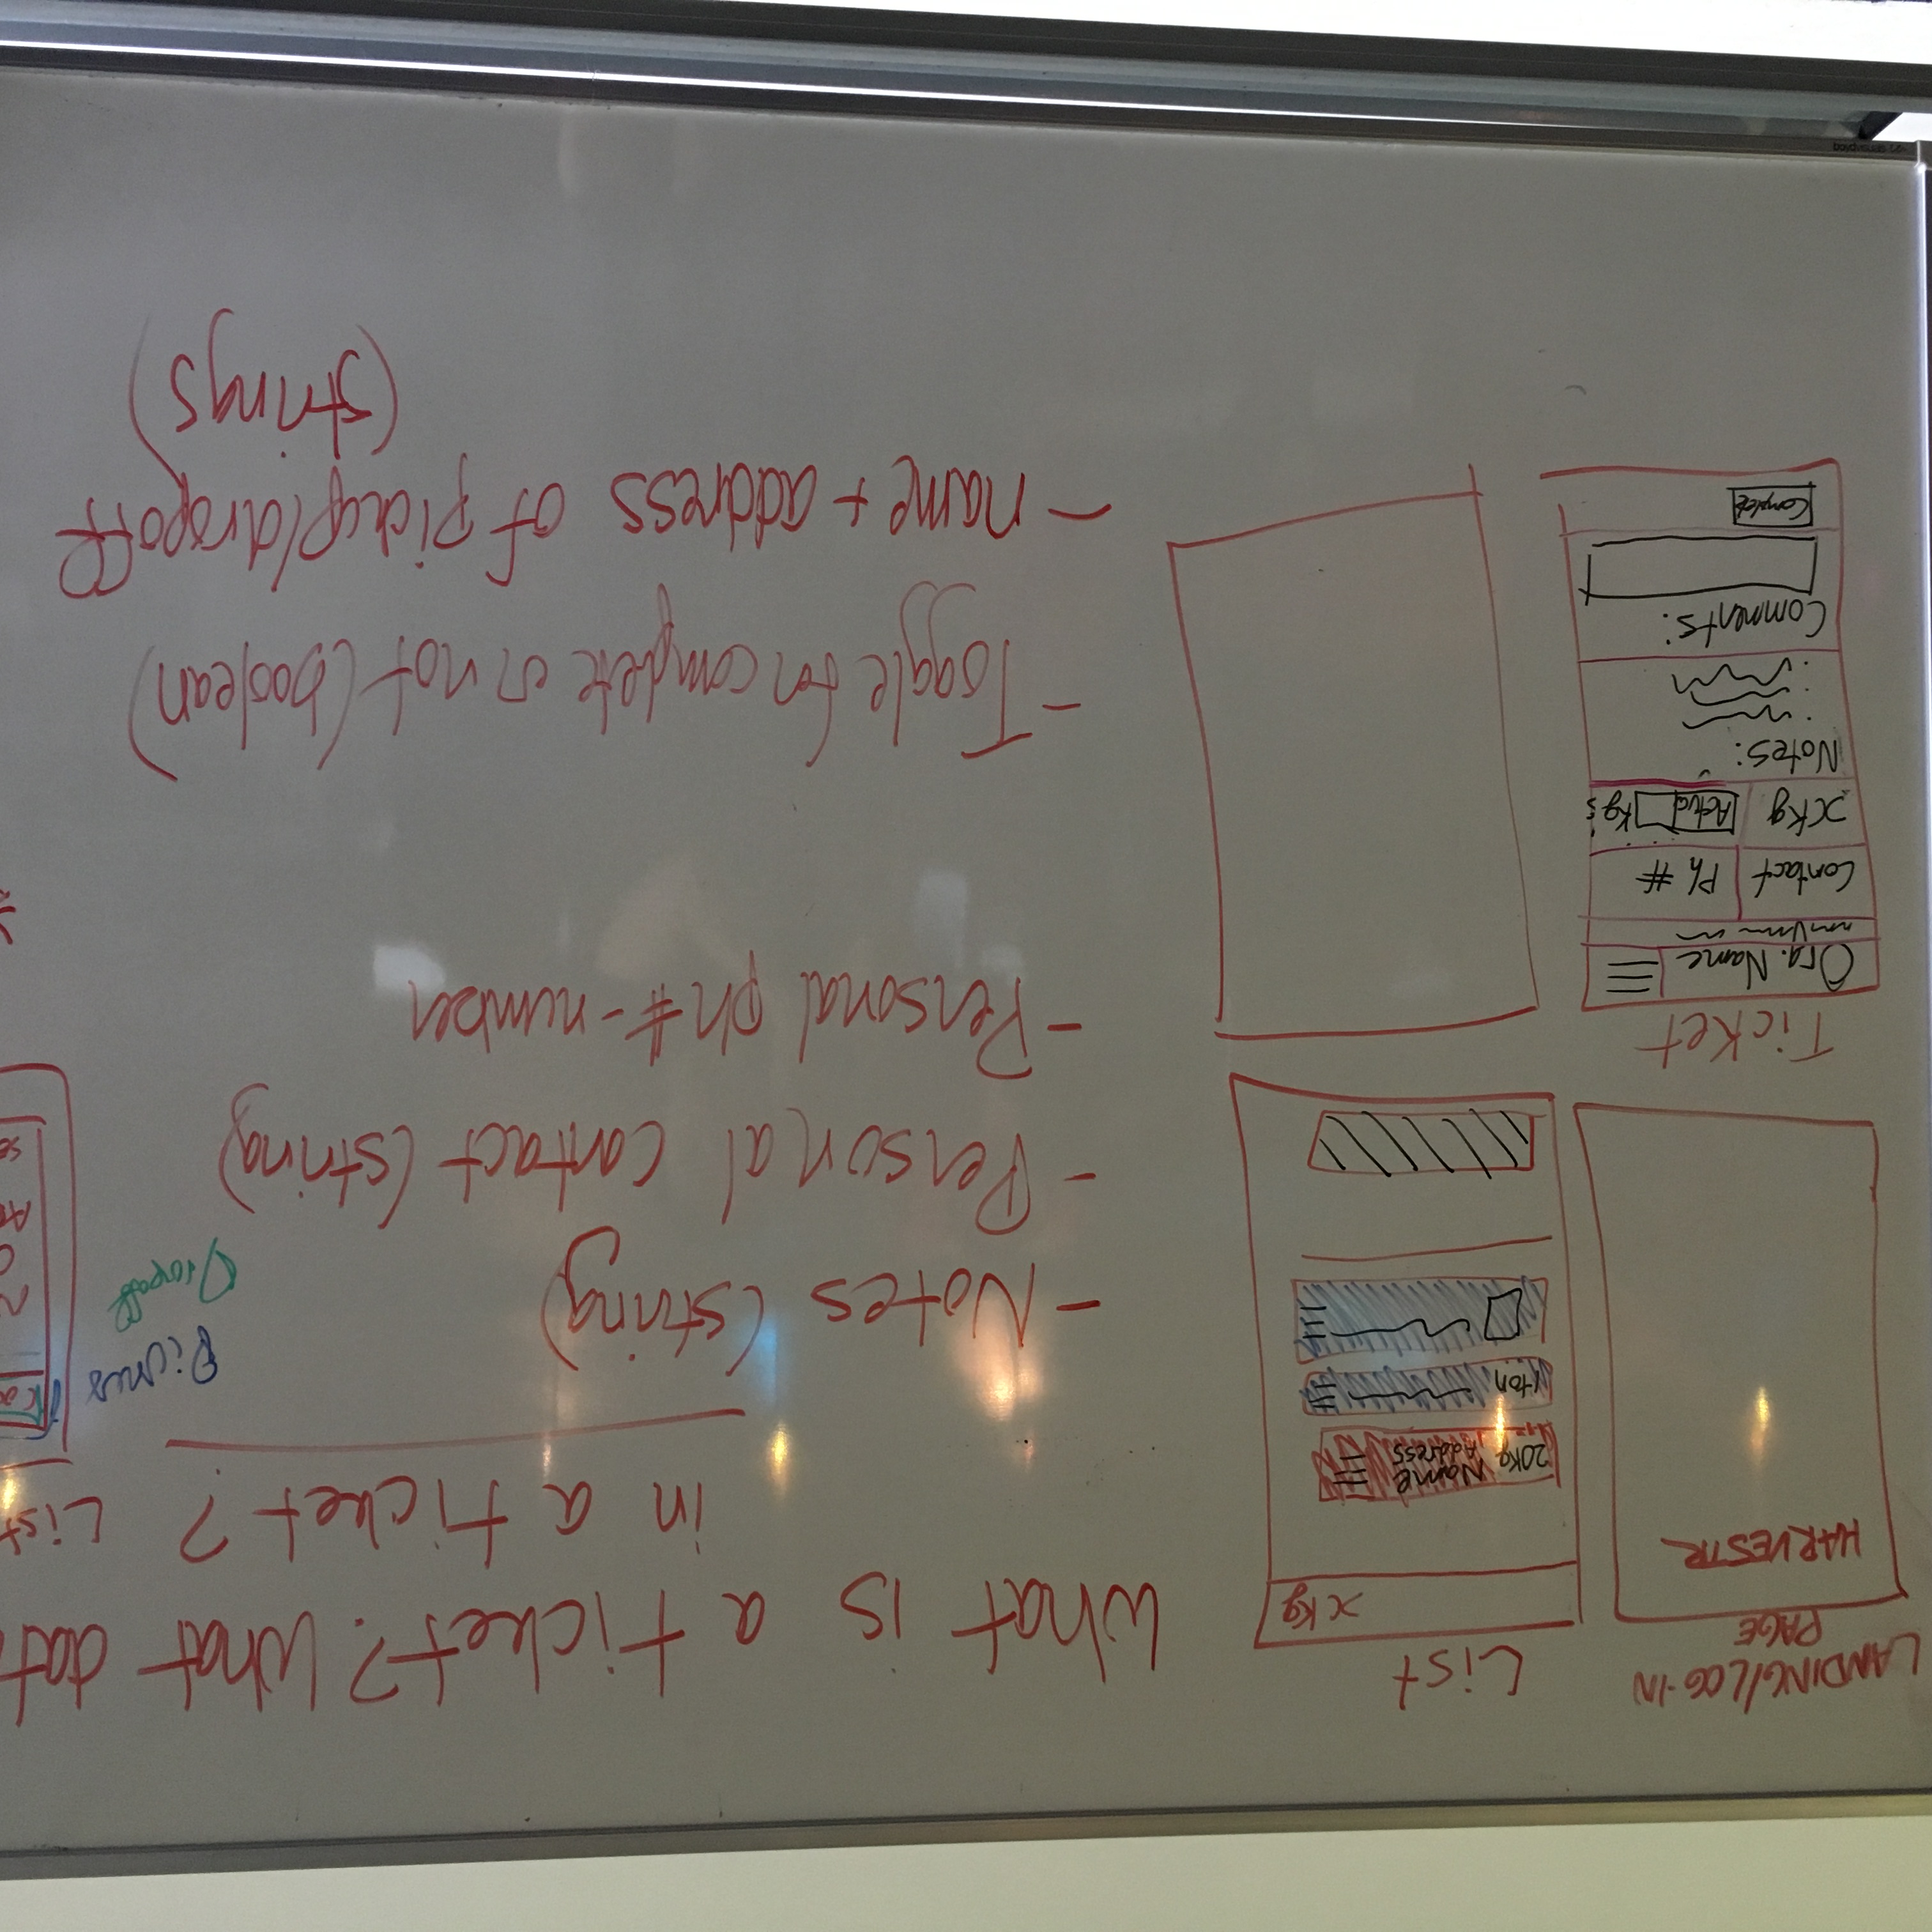 LANDING/LOG-IN
PAGE
HARVESTR
List
x Kg
20Kg Name
Address
1 ton
Ticket
Org. Name
Contact
Ph #
xKg
Actual
Kg's
Notes:
Comments:
Complete
What is a ticket? What dat
in a ticket?
- Notes (string)
- Personal contact (string)
- Personal ph # - number
- Toggle for complete or not (boolean)
- name + address of pickup/dropoff
(strings)
List
Dropoff